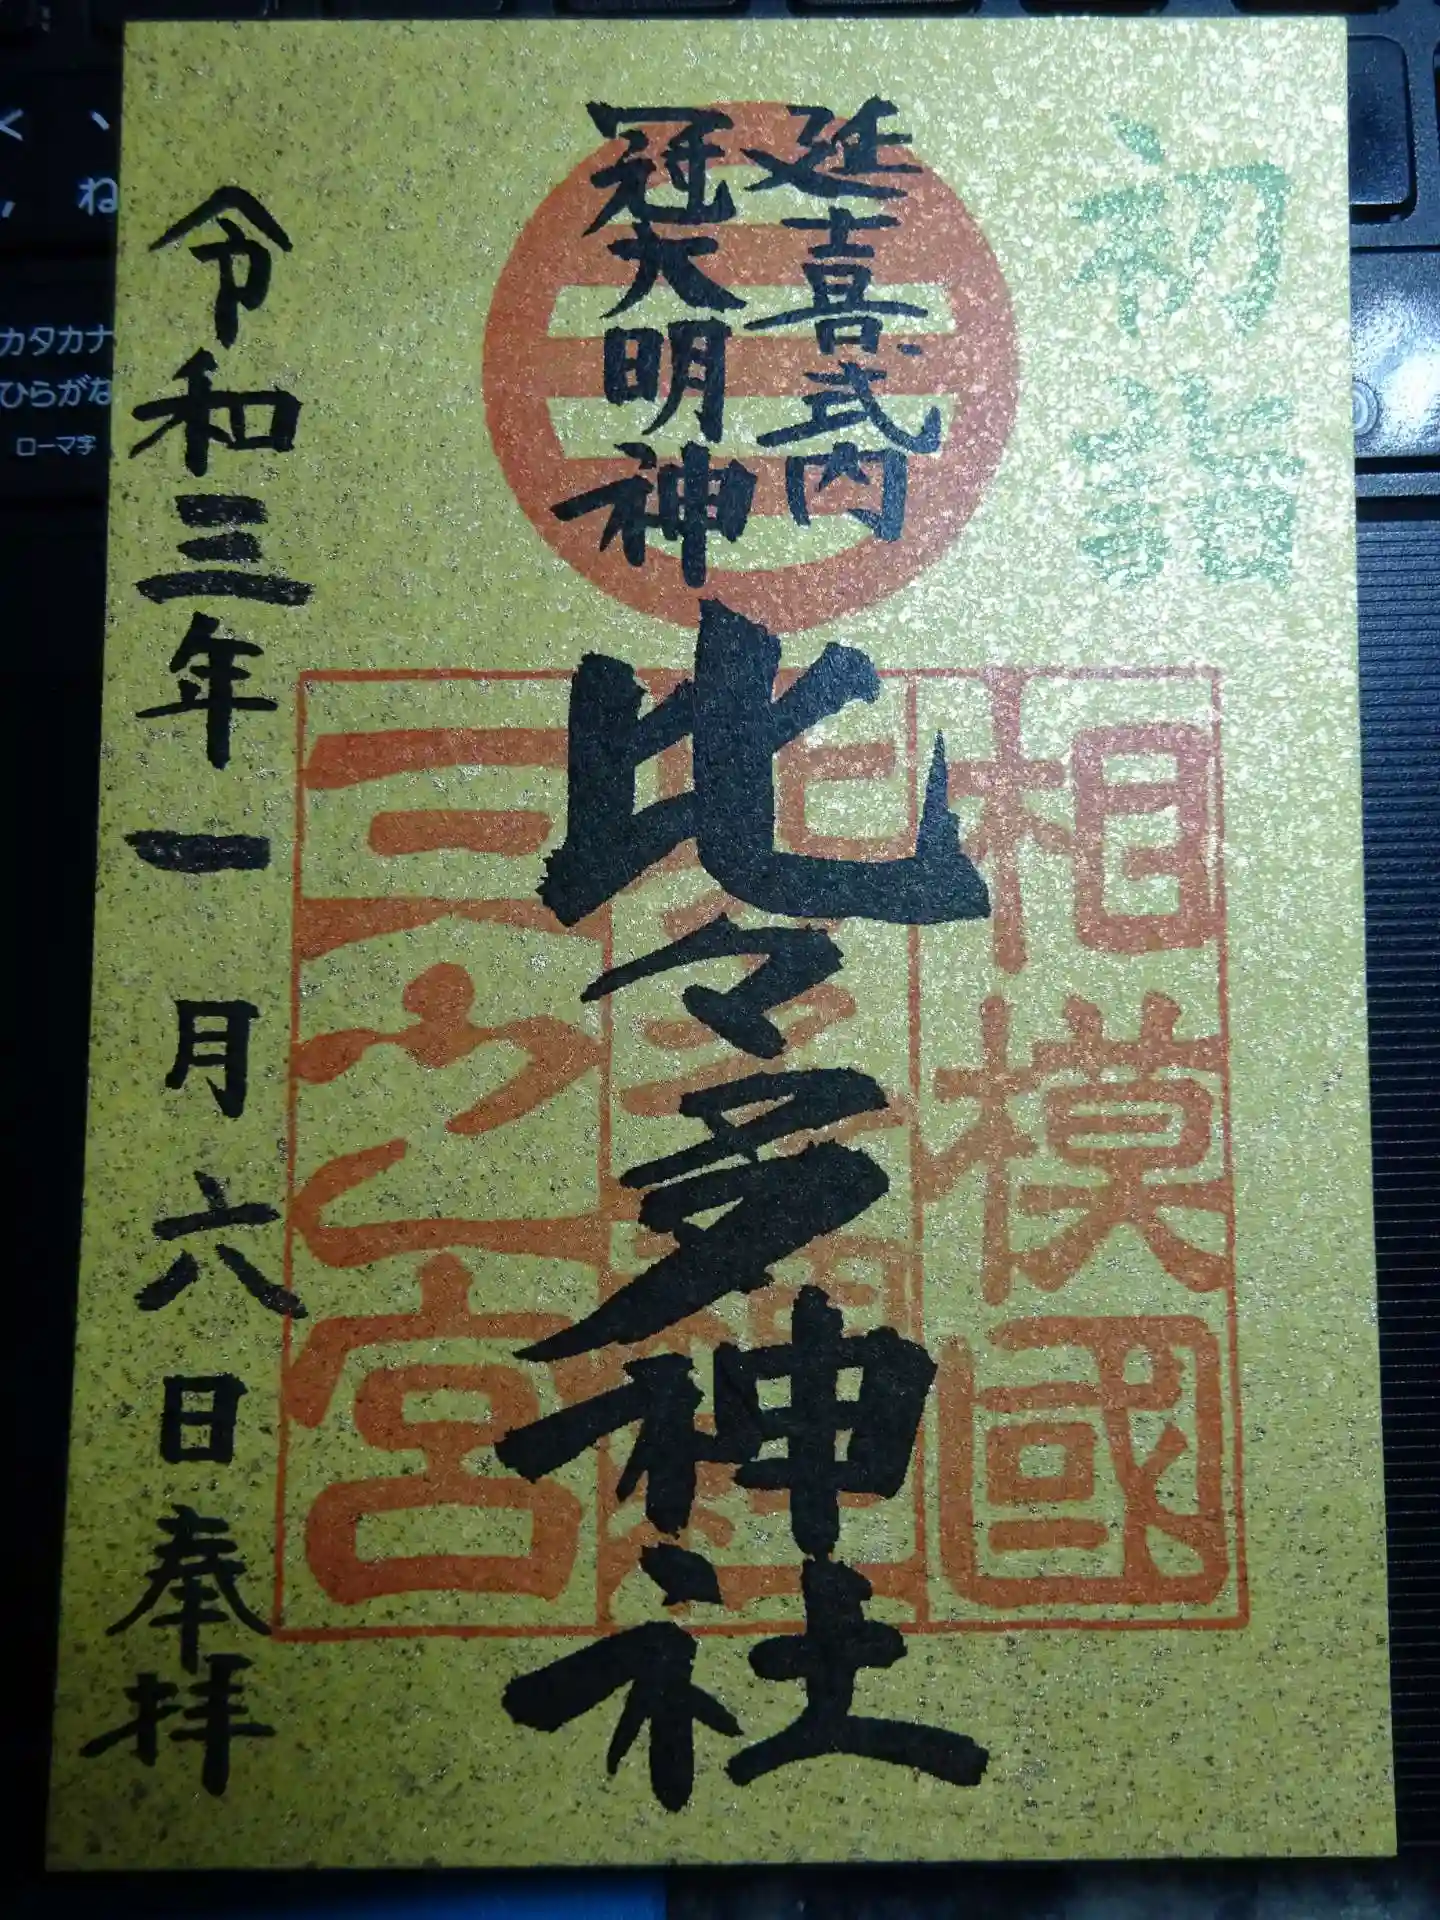 初詣
延喜式内
冠大明神
比々多神社
相模國
三之宮
令和三年一月六日奉拝
く 、
, ね
カタカナ
ひらがな
ローマ字